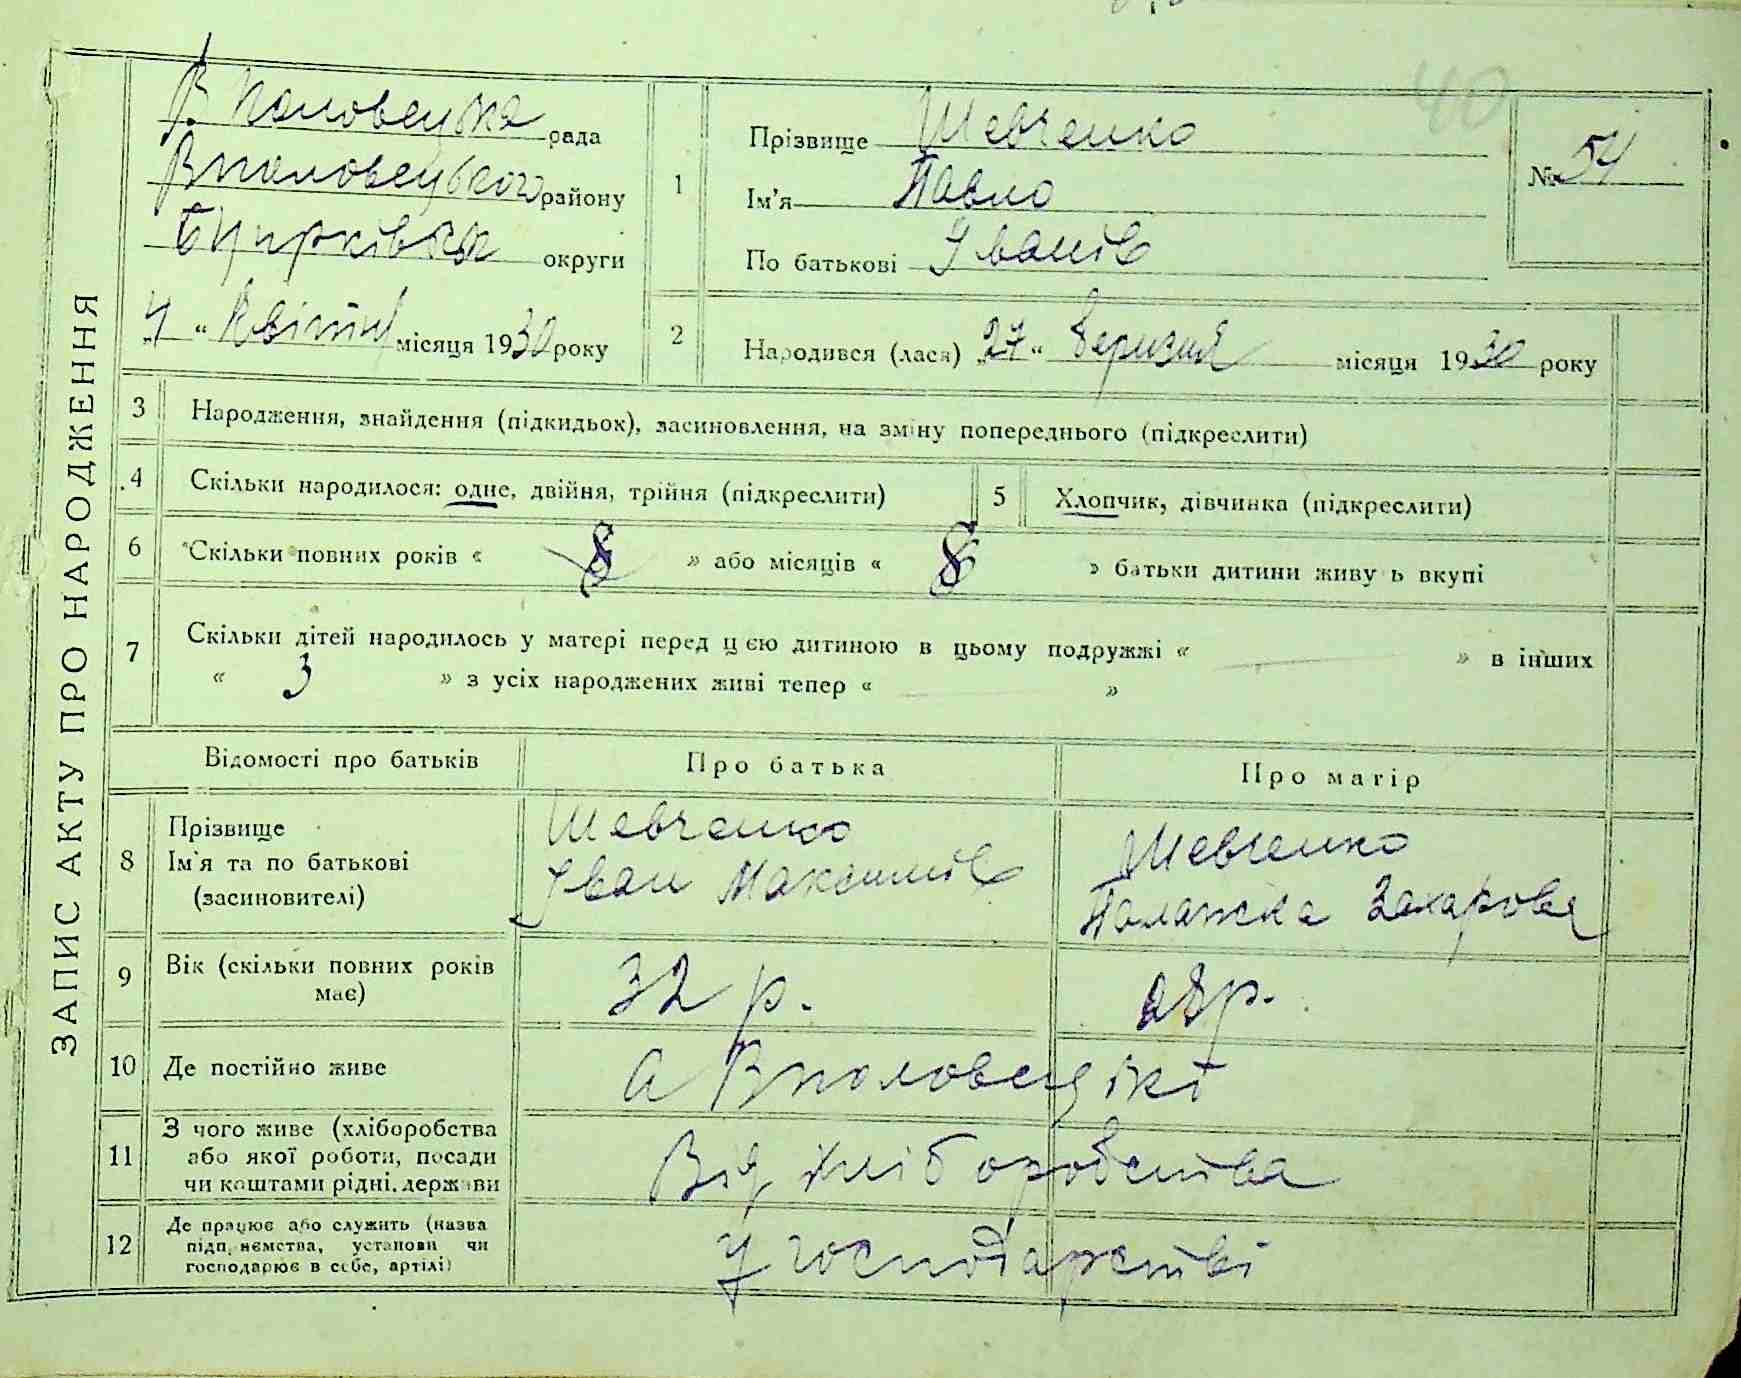 40
ЗАПИС АКТУ ПРО НАРОДЖЕННЯ
В Половецька рада
Вполовецького району
Білоцерківськ округи
"4" Квітня місяця 1930 року
1
Прізвище Шевченко
Ім'я Павло
По батькові Іванів
№ 54
2
Народився (лася) "27" березня місяця 1930 року
3 Народження, знайдення (підкидьок), засиновлення, на зміну попереднього (підкреслити)
4 Скільки народилося: одне, двійня, трійня (підкреслити)
5 Хлопчик, дівчинка (підкреслити)
6 Скільки повних років « 8 » або місяців « 8 » батьки дитини живуть вкупі
7 Скільки дітей народилось у матері перед цією дитиною в цьому подружжі « — » в інших
« 3 » з усіх народжених живі тепер « — »
Відомості про батьків
Про батька
Про матір
8 Прізвище
Ім'я та по батькові
(засиновителі)
Шевченко
Іван Максимів
Шевченко
Палажка Захарова
9 Вік (скільки повних років
має)
32 р.
28 р.
10 Де постійно живе
с Вполовецькі
11 З чого живе (хліборобства
або якої роботи, посади
чи коштами рідні, держави
Від хліборобства
12 Де працює або служить (назва
підприємства, установи чи
господарює в себе, артілі)
У господарстві